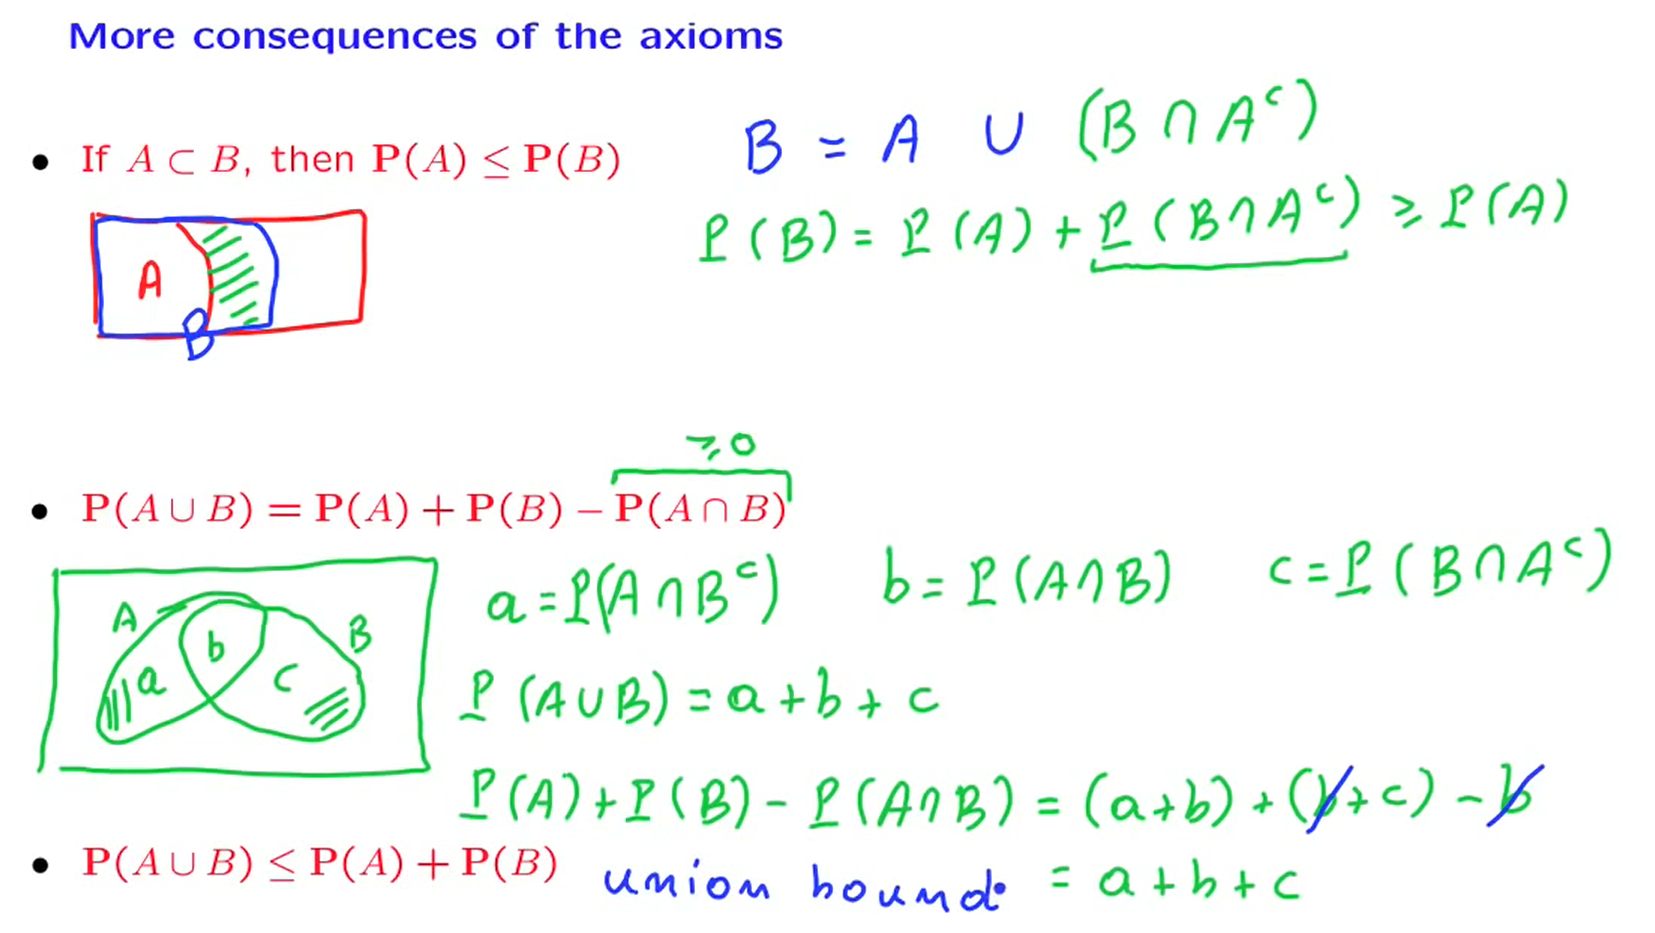 More consequences of the axioms
B = A ∪ (B ∩ Aᶜ)
• If A ⊂ B, then P(A) ≤ P(B)
P(B) = P(A) + P(B ∩ Aᶜ) ≥ P(A)
A
B
≥ 0
• P(A ∪ B) = P(A) + P(B) − P(A ∩ B)
a = P(A ∩ Bᶜ) b = P(A ∩ B) c = P(B ∩ Aᶜ)
A B
a b c
P(A ∪ B) = a + b + c
P(A) + P(B) − P(A ∩ B) = (a + b) + (b + c) − b
• P(A ∪ B) ≤ P(A) + P(B) union bound = a + b + c